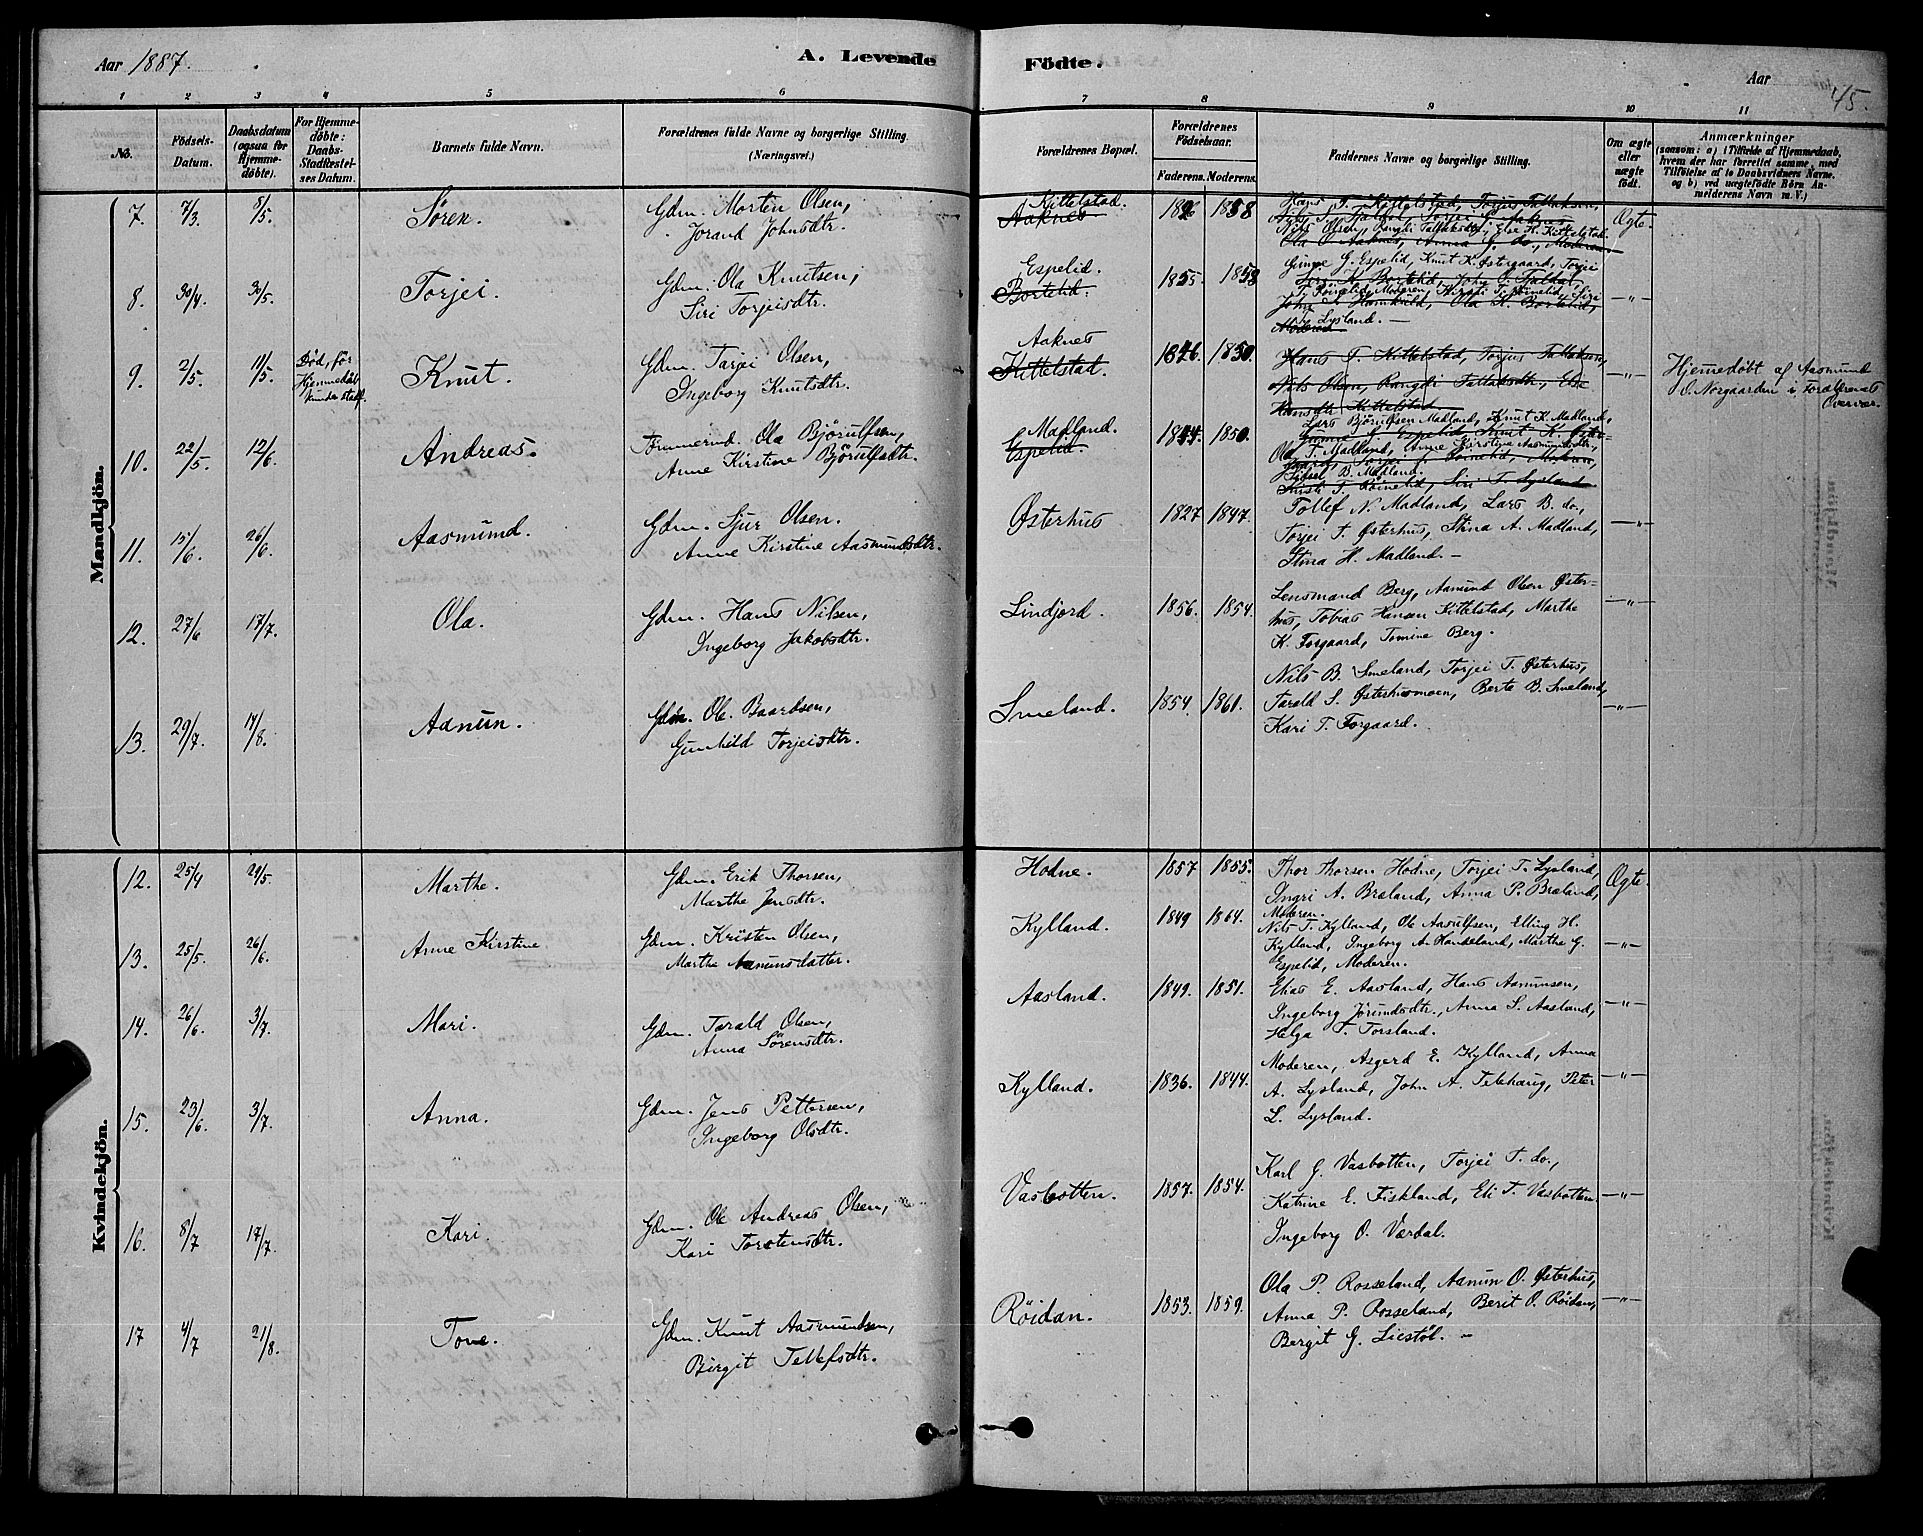 Aar 1887.
A. Levende
1 2 3 4 5 6
No.
Födsels-Datum.
Daabsdatum (ogsaa for Hjemme-døbte).
For Hjemme-døbte: Daabs-Stadfæstel-ses Datum.
Barnets fulde Navn.
Forældrenes fulde Navne og borgerlige Stilling.
(Næringsvei.)
Mandkjön.
7. 7/3 8/5. Søren. Gdm. Morten Olsen,
Jorand Johnsdtr.
8. 30/4. 30/5. Torjei. Gdm. Ola Knutsen,
Siri Torjeisdtr.
9. 2/5. 11/5. Død, før
Hjemmedåb
kunde stadf.
Knut. Gdm. Tarjei Olsen,
Ingeborg Knutsdtr.
10. 22/5. 12/6. Andreas. Tømmermd. Ola Bjørulfsen,
Anne Kirstine Bjørulfsdtr.
11. 15/6. 26/6. Aasmund. Gdm. Sjur Olsen.
Anne Kirstine Aasmundsdtr.
12. 27/6 17/7. Ola. Gdm. Hans Nilsen,
Ingeborg Jakobsdtr.
13. 29/7. 14/8. Aanun. Gdm. Ole Baardsen,
Gunhild Torjeisdtr.
Kvindekjön.
12. 25/4 29/5. Marthe. Gdm. Erik Thorsen,
Marthe Jensdtr.
13. 25/5. 26/6. Anne Kirstine Gdm. Kristen Olsen,
Marthe Aanunsdatter.
14. 26/6. 3/7. Mari. Gdm. Tarald Olsen,
Anna Sørensdtr.
15. 23/6. 3/7. Anna. Gdm. Jens Pettersen,
Ingeborg Olsdtr.
16. 8/7 17/7. Kari. Gdm. Ole Andreas Olsen,
Kari Torstensdtr.
17 4/7 21/8. Tone. Gdm. Knut Aasmundsen,
Birgit Tellefsdtr.
Födte.
Aar
45.
7 8 9 10 11
Forældrenes Bopæl.
Forældrenes Födselsaar.
Faderens. Moderens.
Faddernes Navne og borgerlige Stilling.
Om ægte eller uægte født.
Anmærkninger
(saasom: a) i Tilfælde af Hjemmedaab,
hvem der har forrettet samme, med
Tilföielse af to Daabsvidners Navne.
og b) ved uægtefödte Börn An-
melderens Navn m. V.)
Kittelstad.
Aaknes 1858 Hans T. Kittelstad, Torjus Tallaksen,
Nils Olsen, Rangdi Tallaksdtr, Else H. Kittelstad.
Ola O. Aaknes, Anna G. do., Moderen
Ægte.
Espelid.
Bortelid. 1855 1858 Gunne G. Espelid, Knut K. Østergaard, Torjei
T. Røinelid, Moderen, Kirsti T. Røinelid, Siri
T. Lysland. —
—"—
Aaknes
Kittelstad. 1846 1850. Hans T. Kittelstad, Torjus Tallaksen,
Nils Olsen, Rangdi Tallaksdtr., Else
Hansdtr Kittelstad
—"— Hjemmedøbt af Aasmund
O. Norgaarden i Forældrenes
Overvær.
Madland.
Espelid. 1844. 1850. Lars Bjørulfsen Madland, Knut K. Madland,
Ola T. Madland, Anne Kirstine Aasmundsdtr.,
Sidsel B. Madland.
Kirsti T. Røinelid, Siri T. Lysland
Østerhus 1827 1847. Tollef N. Madland, Lars B. do.,
Torjei T. Østerhus, Stina A. Madland,
Stina H. Madland. —
—"—
Lindjord. 1856. 1854. Lensmand Berg, Aanund Olsen Øster-
hus, Tobias Hansen Kittelstad, Marthe
K. Forgaard, Tomine Berg.
—"—
Smeland. 1854. 1861. Nils B. Smeland, Torjei T. Østerhus,
Tarald S. Østerhusmoen, Berte B. Smeland,
Kari T. Forgaard.
—"—
Hodne. 1857 1855. Thor Thorsen Hodne, Torjei T. Lysland,
Ingri A. Bræland, Anna P. Bræland,
Moderen.
Ægte.
Kylland. 1849 1864. Nils T. Kylland, Ole Aasulfsen, Elling H.
Kylland, Ingeborg A. Handeland, Marthe G.
Espelid, Moderen.
—"—
Aasland. 1849. 1851. Elias E. Aasland, Hans Aanunsen,
Ingeborg Jørundsdtr., Anna S. Aasland,
Helga T. Torsland.
—"—
Kylland. 1836. 1844. Moderen, Asgerd E. Kylland, Anna
A. Lysland, John A. Telehaug, Peter
L. Lysland.
—"—
Vasbotten. 1857. 1854. Karl G. Vasbotten, Torjei T. do.,
Katrine E. Fiskland, Eli T. Vasbotten
Ingeborg O. Værdal.
—"—
Röidan. 1853. 1859. Ola P. Rosseland, Aanun O. Østerhus,
Anna P. Rosseland, Berit O. Röidan,
Bergit G. Liestøl. —
—"—